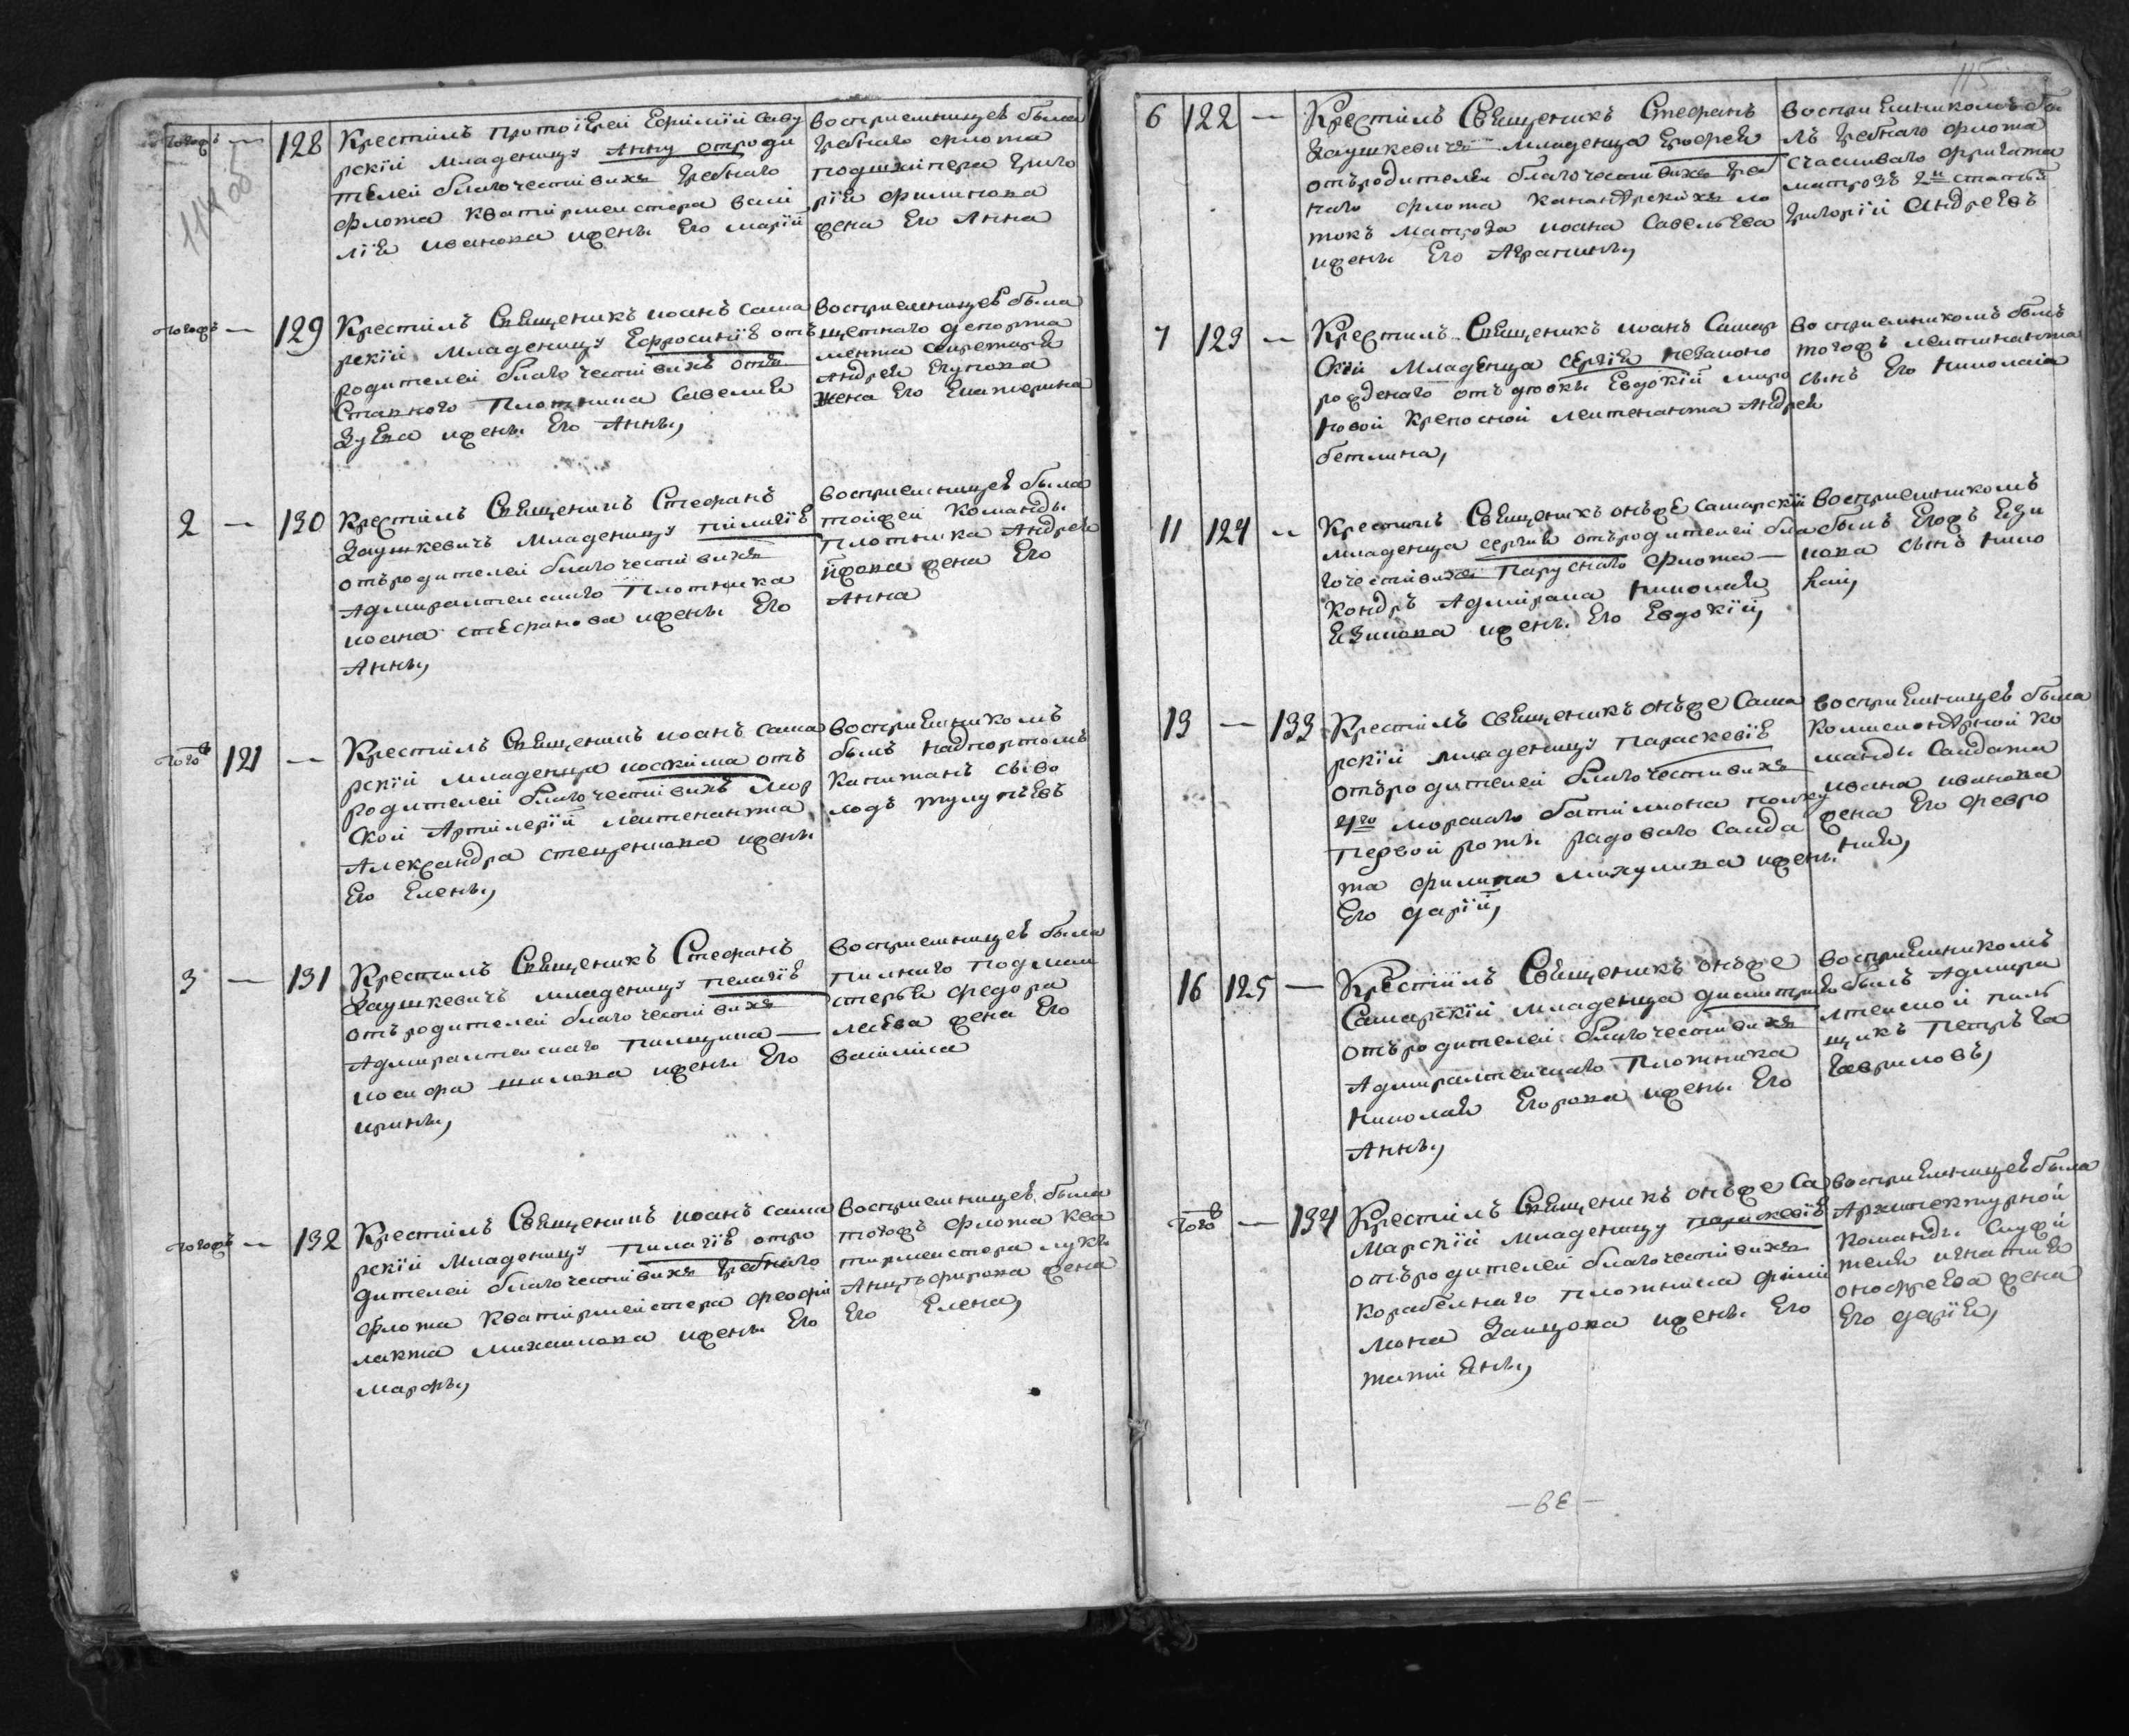 114 об
тогожъ — 128
Крестилъ протоіерей Ефимій Саву
рскій младеницу Анну отроди
телей благочестивихъ гребнаго
флота квотирмейстера васи
лія иванова ижены Его маріи
восприемницеѣ была
гребнаго флота
подшкипера григо
рія филипова
жена Его Анна
тогожъ — 129
Крестилъ Священикъ иоанъ сама
рскій младеницу Ефросинію отъ
родителей благочестивихъ отъ
Ставного плотника Савелия
Зуева ижены Его Анны,
восприемницеѣ была
щетнаго депорта
мента секретаря
Андрея
жена Его Екатерина
2 — 130
Крестилъ Священикъ Стефанъ
Заушкевичъ младеницу
отъродителей благочестивихъ
Адмиралтейскаго плотника
иоана стефанова ижены Его
Анны,
восприемницеѣ была
тойжей команды
плотника Андрея
жена Его
Анна
того 121 —
Крестилъ Священикъ иоанъ сама
рскій младенца иоакима отъ
родителей благочестивихъ мор
ской Артилеріи лейтенанта
Александра стеценкова ижены
Его Елены,
восприемникомъ
былъ надпортомъ
капитанъ Сѣво
лодъ тулупъевъ
3 — 131
Крестилъ Священикъ Стефанъ
Заушкевичъ младеницу пелагіѣ
отъродителей благочестивихъ
Адмиралтейскаго пилщика —
иосифа шилова ижены Его
ирины,
восприемницеѣ была
пилнаго подмай
стерья федора
жена Его
василиса
тогожъ — 132
Крестилъ Священикъ иоанъ сама
рскій младеницу пилагіѣ отро
дителей благочестивихъ гребнаго
флота квотирмейстера феофи
лакта михаилова ижены Его
Марфы,
восприемницеѣ была
тогожъ флота ква
тирмейстера луки
жена
Его Елена,
115
6 122 —
Крестилъ Священикъ Стефанъ
Заушкевичъ младенца Ерофея
отъродителей благочестивихъ греб
наго флота канонерскихъ ло
токъ матроза иоана Савельева
ижены Его Аграпины,
восприемникомъ бы
лъ гребнаго флота
счасливаго фригата
матрозъ 2й статьи
григорій Андреевъ
7 123 —
Крестилъ Священикъ иоанъ Самар
скій младенца сергія незаконо
рожденаго отъ дѣвки Евдокіи миро
новой крепосной лейтенанта Андрея
бетлина,
восприемникомъ былъ
тогожъ лейтинанта
сынъ Его николаи
11 124 —
Крестилъ Священикъ онъже самарскій
младенца сергия отъродителей бла
гочестивихъ парускаго флота —
контръ Адмирала николая
Езимова ижены Его Евдокіи,
восприемникомъ
былъ Егожъ Ези
мова сынъ нико
лай,
13 — 133
Крестилъ священикъ онъже Сама
рскій младеницу параскевіѣ
отъродителей благочестивихъ
4го морскаго баталиона полку
первой роты радоваго салда
та филипа михулина ижены
Его даріи,
восприемницеѣ была
ко
манды салдата
ивана иванова
жена Его февро
ния,
16 125 —
Крестіилъ Священикъ онъже
Самарскій младенца димитрия
отъродителей благочестивихъ
Адмиралтейскаго плотника
николая Егорова ижены Его
Анны,
восприемникомъ
былъ Адмира
лтейской пиль
щикъ петръ га
гавриловъ,
того — 134
Крестилъ Священикъ онъже Са
марскій младеницу параскевіѣ
отъродителей благочестивихъ
корабелнаго плотника фили
мона Заицова ижены Его
татияны,
восприемницеѣ была
Архитектурной
команды служи
теля игнатия
онофрева жена
Его дарія,
— 39 —